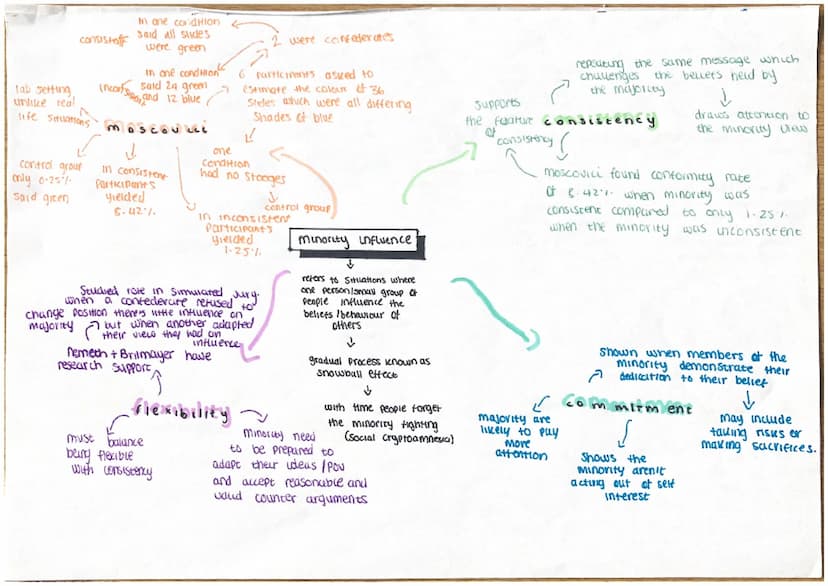 In one condition
said all slides
were green
consistent
2 were confederates
In one condition
said 24 green
and 12 blue
6 Participants asked to
estimate the colour of 36
slides which were all differing
shades of blue
lab setting
unlike real
life situations
moscovici
control group
only 0.25%
said green
In consistent
Participants
yielded
8.42%
one
condition
had no stooges
control group
In inconsistent
Participants
yielded
1.25%
repeating the same message which
challenges the beliefs held by
the majority
supports
the feature
of
consistency
consistency
draws attention to
the minority view
moscovici found conformity rate
of 8.42% when minority was
consistent compared to only 1.25%
when the minority was inconsistent
minority influence
refers to situations where
one person/small group of
people influence the
beliefs/behaviour of
others
gradual process known as
snowball effect
with time people forget
the minority fighting
(social cryptoamnesia)
Studied role in simulated jury.
when a confederate refused to
change position theres little influence on
majority but when another adapted
their view they had an
influence
Nemeth + Brilmayer have
research support
flexibility
must balance
being flexible
with consistency
Minority need
to be prepared to
adapt their ideas/POV
and accept reasonable and
valid counter arguments
Shown when members of the
minority demonstrate their
dedication to their belief
commitment
majority are
likely to pay
more
attention
Shows the
minority aren't
acting out of self
interest
may include
taking risks or
making sacrifices.